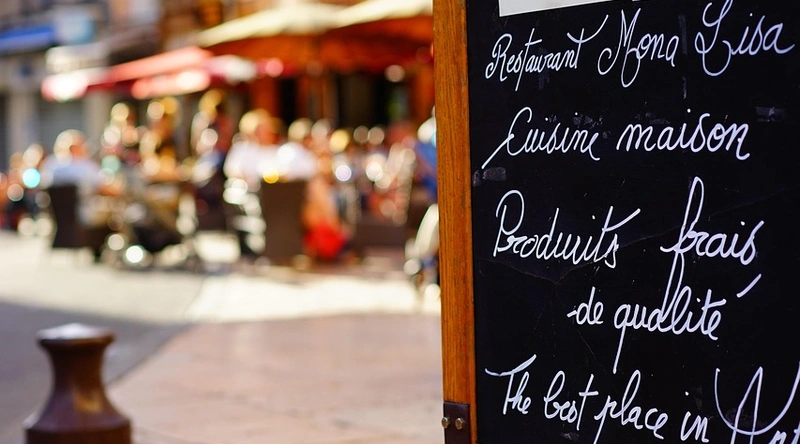 Restaurant Mona Lisa
Cuisine maison
Produits frais
de qualité
The best place in Ant